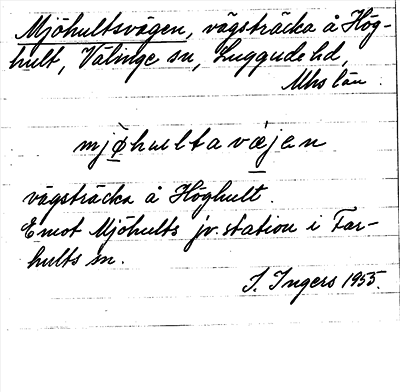 Mjöhultsvägen, vägsträcka å Hög-
hult, Välinge sn, Luggude hd,
Mhs län.
mjøhultavæjen
vägsträcka å Höghult.
Emot Mjöhults jv. station i Far-
hults sn.
I. Ingers 1955.